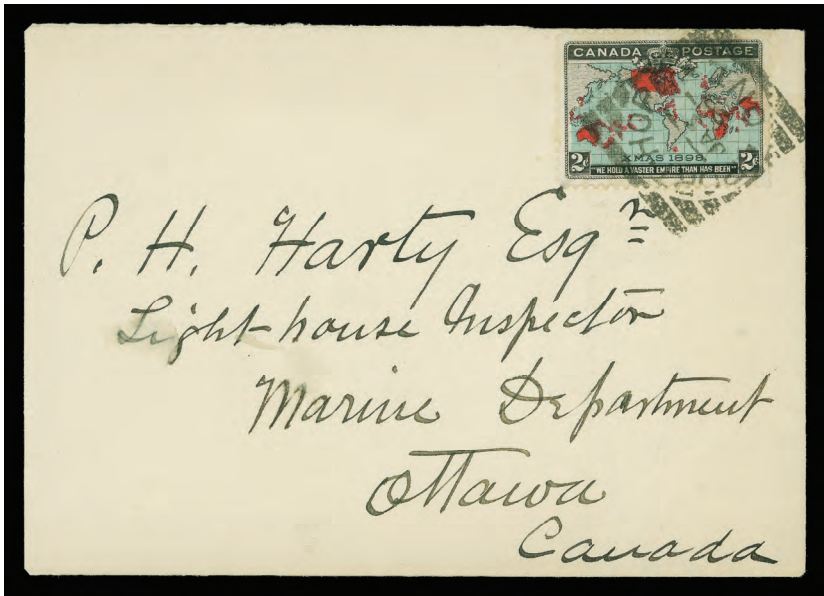 CANADA POSTAGE
XMAS 1898
2¢ 2¢
"WE HOLD A VASTER EMPIRE THAN HAS BEEN"
P. H. Harty Esqr
Light-house Inspector
Marine Department
Ottawa
Canada